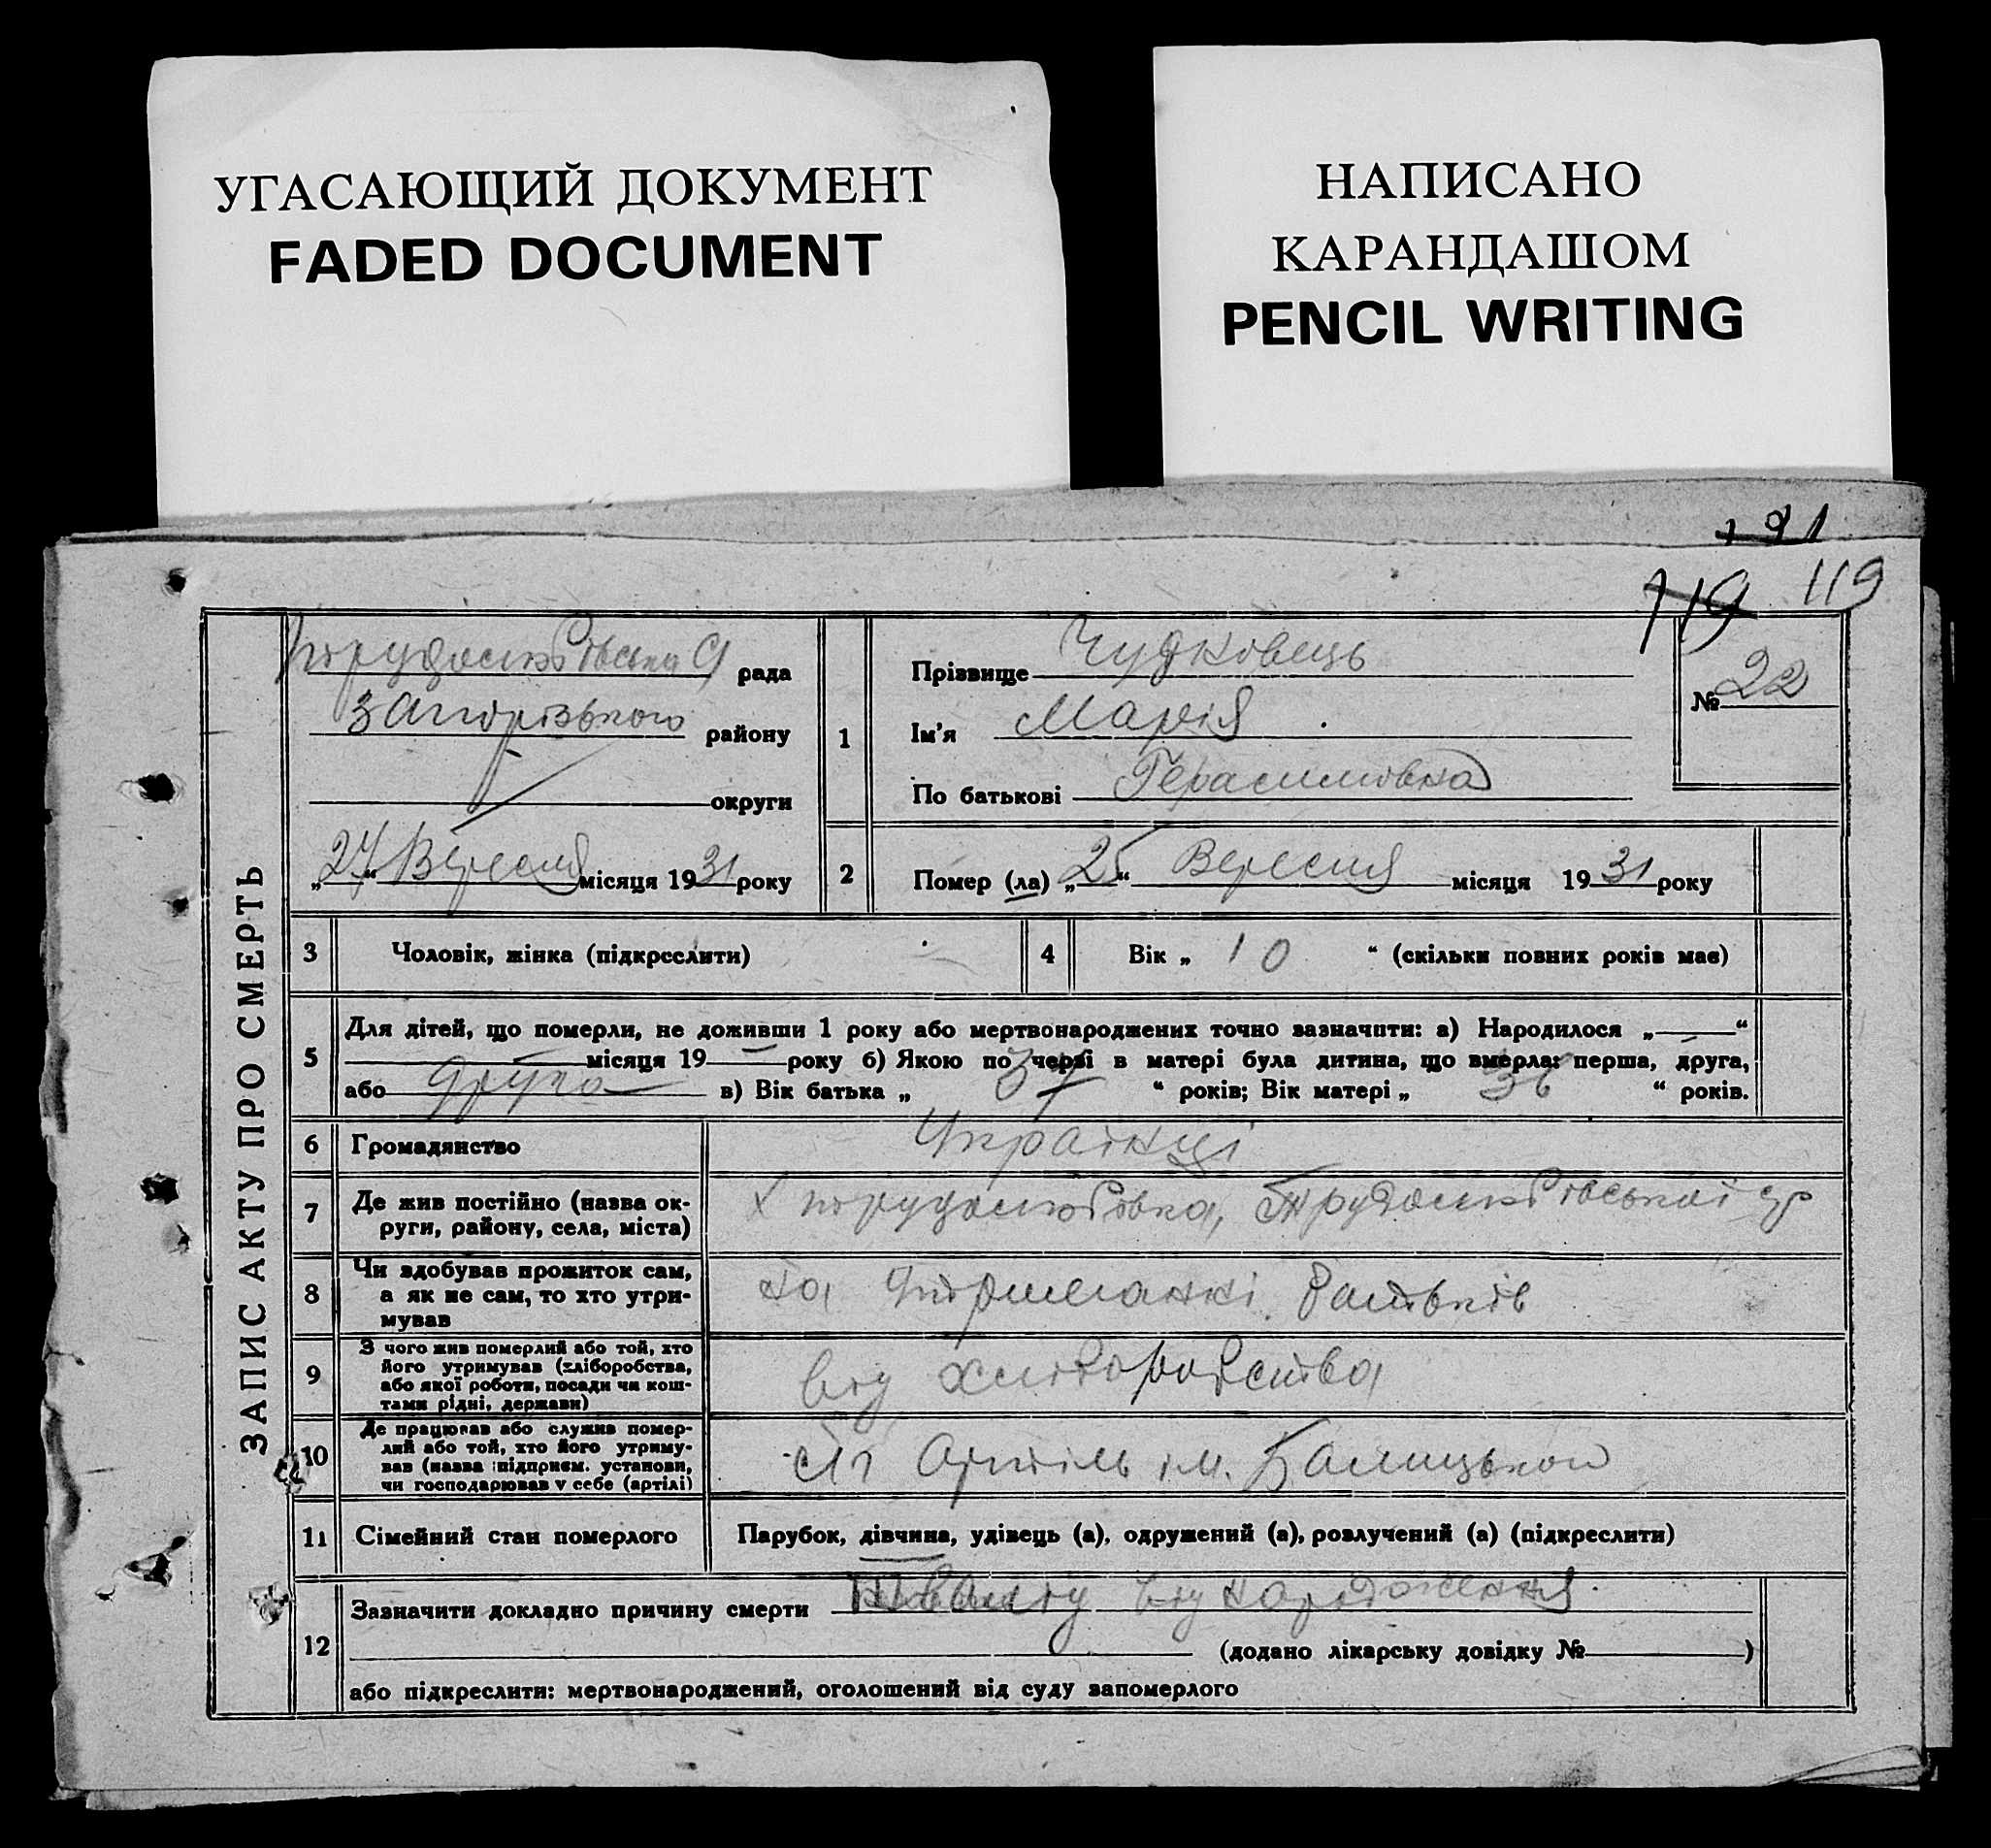 УГАСАЮЩИЙ ДОКУМЕНТ
FADED DOCUMENT
НАПИСАНО
КАРАНДАШОМ
PENCIL WRITING
191
119 119
ЗАПИС АКТУ ПРО СМЕРТЬ
рада
Запорізького району
округи
„27“ Вересня місяця 1931 року
1
Прізвище Чудковець
Ім'я Марія
По батькові Герасимовна
№ 22
2 Помер (ла) „25“ Вересня місяця 1931 року
3 Чоловік, жінка (підкреслити)
4 Вік „ 10 “ (скільки повних років має)
5 Для дітей, що померли, не доживши 1 року або мертвонароджених точно зазначити: а) Народилося „—“
місяця 19—року б) Якою по черзі в матері була дитина, що вмерла: перша, друга,
або друга в) Вік батька „ 37 “ років; Вік матері „ 36 “ років.
6 Громадянство Українці
7 Де жив постійно (назва ок-
руги, району, села, міста)
8 Чи здобував прожиток сам,
а як не сам, то хто утри-
мував
на утриманні батьків
9 З чого жив померлий або той, хто
його утримував (хліборобства,
або якої роботи, посади чи кош-
тами рідні, держави)
від хліборобства
10 Де працював або служив помер-
лий або той, хто його утриму-
вав (назва підприєм. установи,
чи господарював у себе (артілі)
Артіль ім. Балицького
11 Сімейний стан померлого Парубок, дівчина, удівець (а), одружений (а), розлучений (а) (підкреслити)
12 Зазначити докладно причину смерти від народження
(додано лікарську довідку №)
або підкреслити: мертвонароджений, оголошений від суду запомерлого